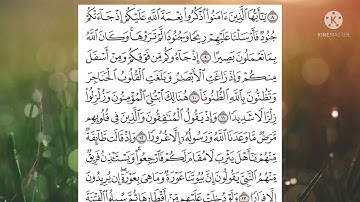 ٨ يَٰٓأَيُّهَا ٱلَّذِينَ ءَامَنُوا۟ ٱذْكُرُوا۟ نِعْمَةَ ٱللَّهِ عَلَيْكُمْ إِذْ جَآءَتْكُمْ
جُنُودٌ فَأَرْسَلْنَا عَلَيْهِمْ رِيحًا وَجُنُودًا لَّمْ تَرَوْهَا وَكَانَ ٱللَّهُ
بِمَا تَعْمَلُونَ بَصِيرًا ٩ إِذْ جَآءُوكُم مِّن فَوْقِكُمْ وَمِنْ أَسْفَلَ
مِنكُمْ وَإِذْ زَاغَتِ ٱلْأَبْصَٰرُ وَبَلَغَتِ ٱلْقُلُوبُ ٱلْحَنَاجِرَ
وَتَظُنُّونَ بِٱللَّهِ ٱلظُّنُونَا۠ ١٠ هُنَالِكَ ٱبْتُلِىَ ٱلْمُؤْمِنُونَ وَزُلْزِلُوا۟
زِلْزَالًا شَدِيدًا ١١ وَإِذْ يَقُولُ ٱلْمُنَٰفِقُونَ وَٱلَّذِينَ فِى قُلُوبِهِم
مَّرَضٌ مَّا وَعَدَنَا ٱللَّهُ وَرَسُولُهُۥٓ إِلَّا غُرُورًا ١٢ وَإِذْ قَالَت طَّآئِفَةٌ
مِّنْهُمْ يَٰٓأَهْلَ يَثْرِبَ لَا مُقَامَ لَكُمْ فَٱرْجِعُوا۟ وَيَسْتَـْٔذِنُ فَرِيقٌ
مِّنْهُمُ ٱلنَّبِىَّ يَقُولُونَ إِنَّ بُيُوتَنَا عَوْرَةٌ وَمَا هِىَ بِعَوْرَةٍ إِن يُرِيدُونَ
إِلَّا فِرَارًا ١٣ وَلَوْ دُخِلَتْ عَلَيْهِم مِّنْ أَقْطَارِهَا ثُمَّ سُئِلُوا۟ ٱلْفِتْنَةَ
KINEMASTER